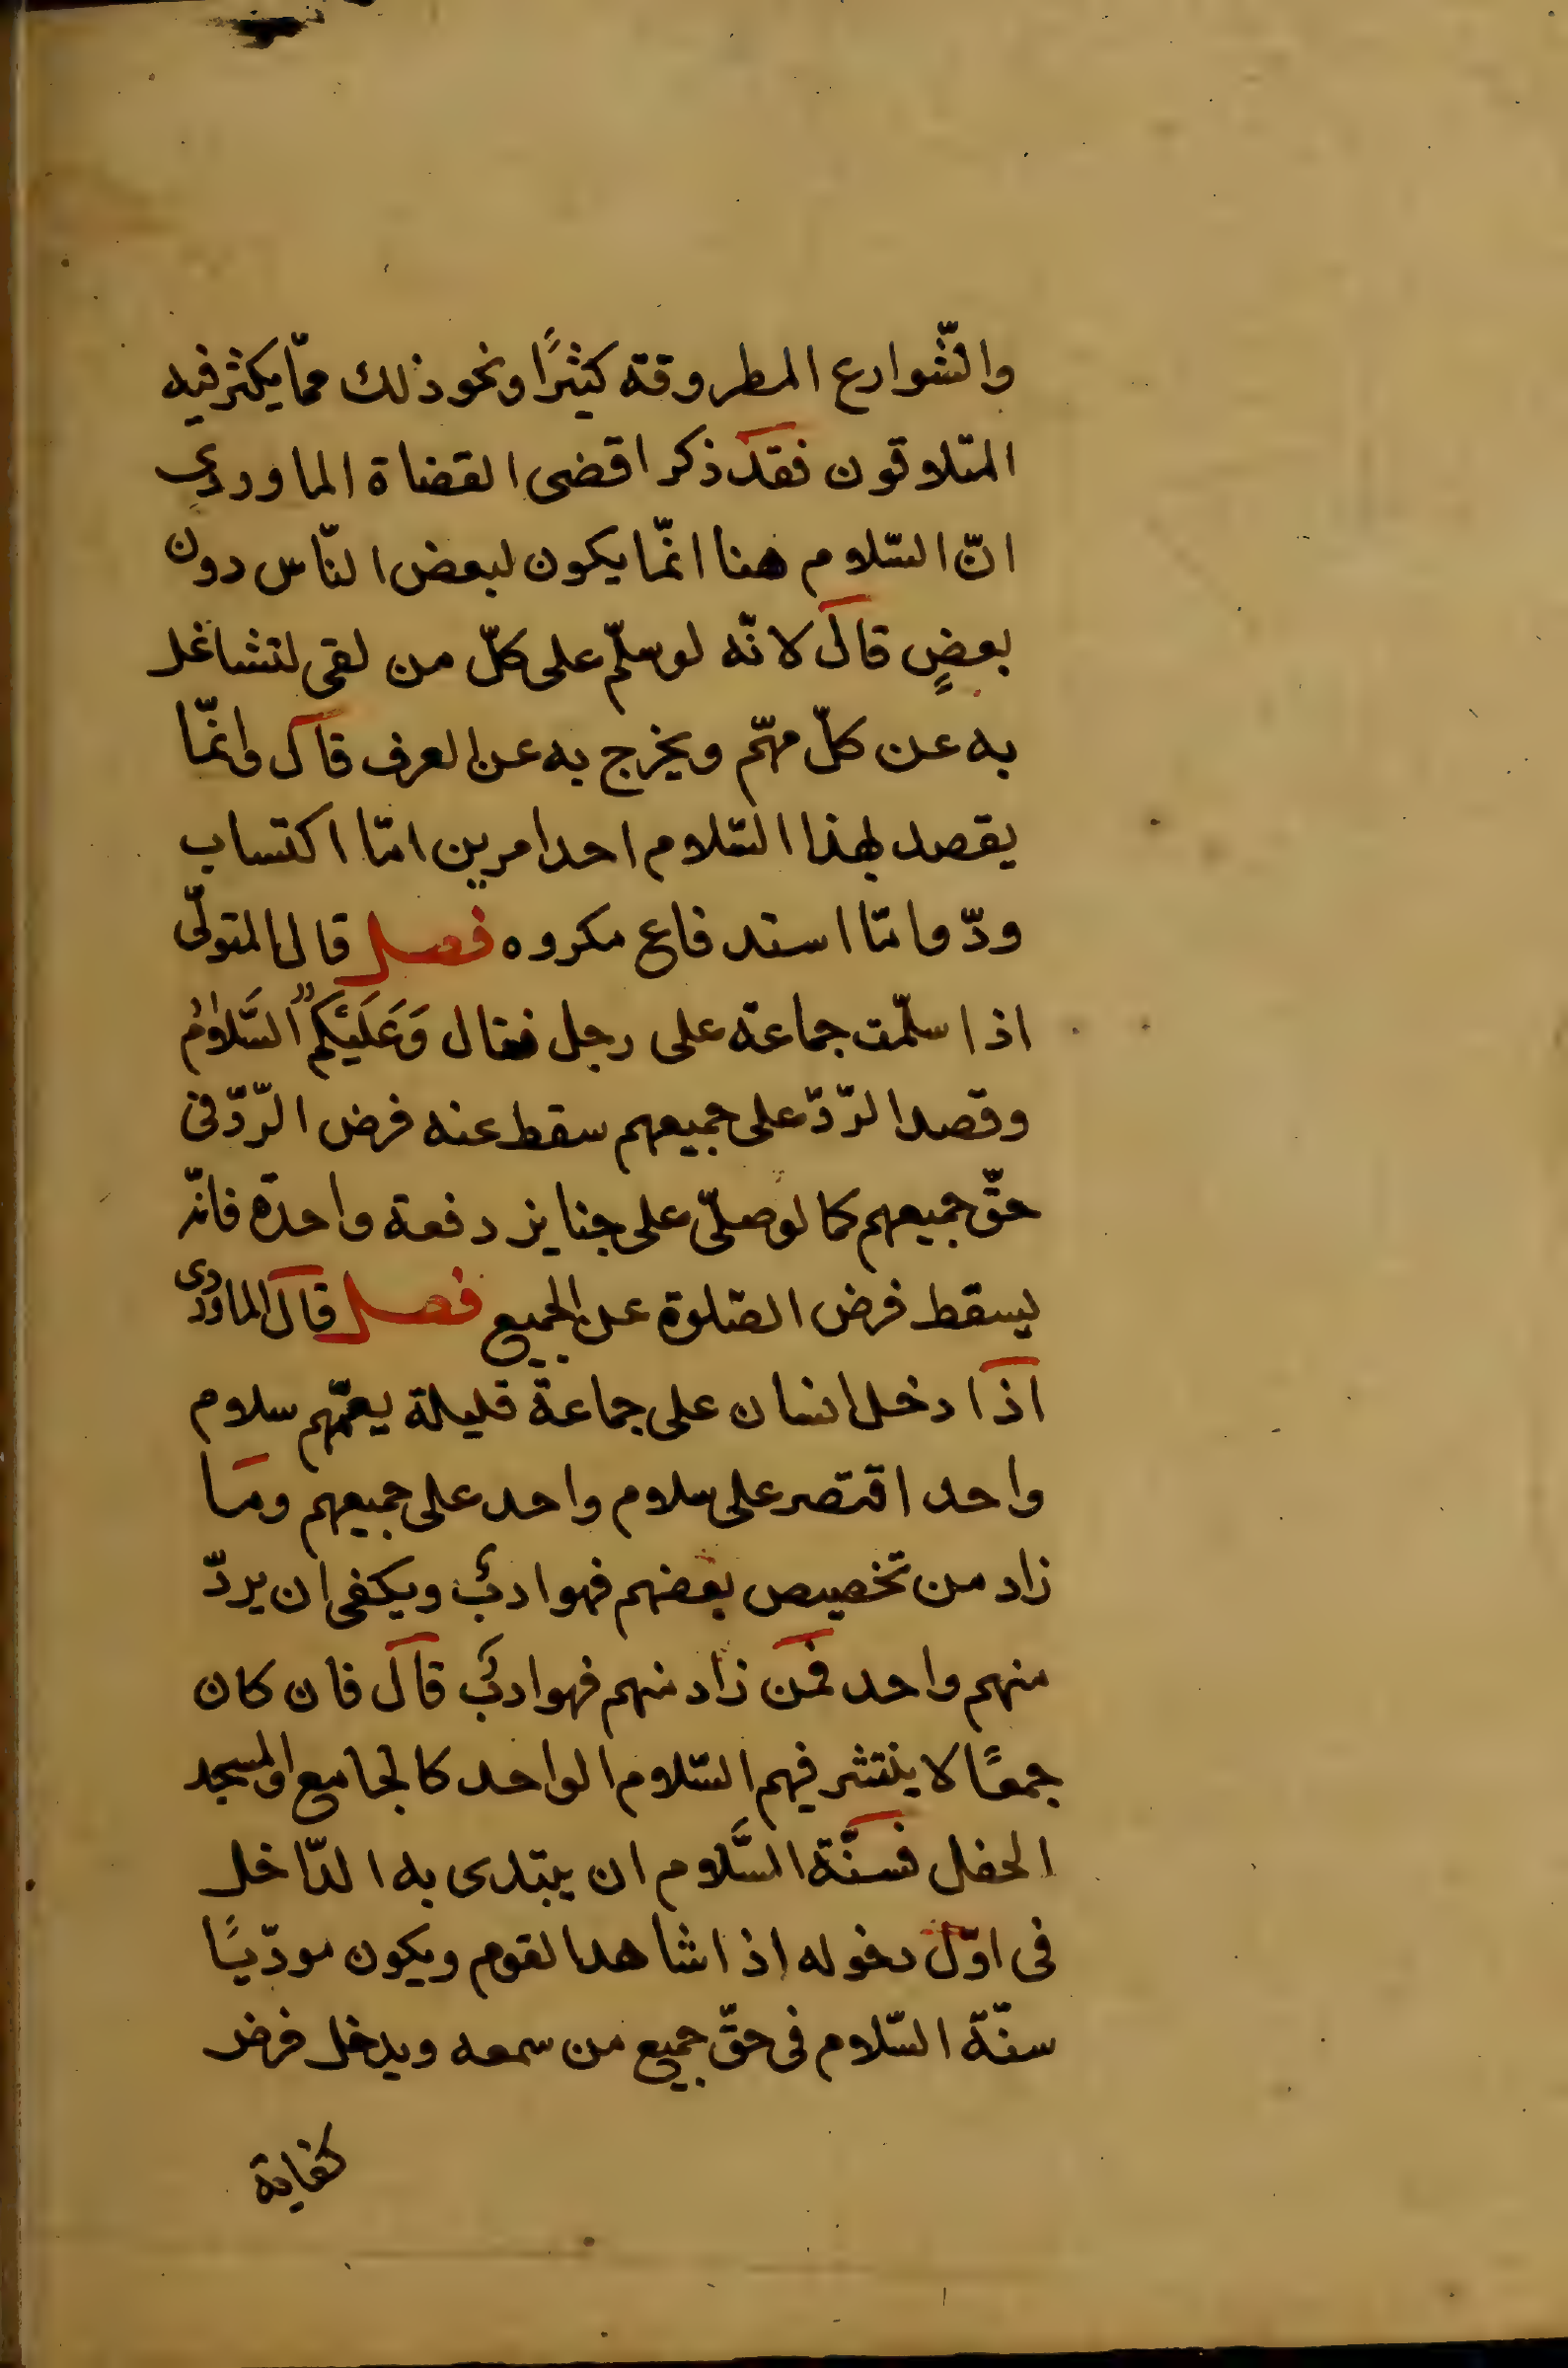 والشّوارع المطروقة كثيرًا ونحو ذلك ممّا يكثر فيه
المتلاقون فقد ذكر اقضى القضاة الماوردي
انّ السّلام هنا انّما يكون لبعض النّاس دون
بعضٍ قال لانّه لو سلّم على كلّ من لقى لتشاغل
به عن كلّ مهّم ويخرج به عن العرف قال وانّما
يقصد بهذا السّلام احد امرين امّا اكتساب
ودّ وامّا استدفاع مكروه فصل قال المتولّى
اذا سلّمت جماعة على رجل فقال وَعَلَيْكم السَّلامُ
وقصد الرّدّ على جميعهم سقط عنه فرض الرّدّ فى
حقّ جميعهم كما لو صلّى على جنايز دفعة واحدة فانّه
يسقط فرض الصّلوة على الجميع فصل قال الماوردى
اذا دخل انسان على جماعة قليلة يعمّهم سلام
واحد اقتصر على سلام واحد على جميعهم وما
زاد من تخصيص بعضهم فهو ادبٌ ويكفى ان يردّ
منهم واحد فمن زاد منهم فهو ادبٌ قال فان كان
جمعًا لا ينتشر فيهم السّلام الواحد كالجامع او المسجد
الحفل فسنّة السَّلام ان يبتدى به الدّاخل
فى اوّل دخوله اذا شاهد القوم ويكون مودّيًا
سنّة السّلام فى حقّ جميع من سمعه ويدخل فرض
كفاية